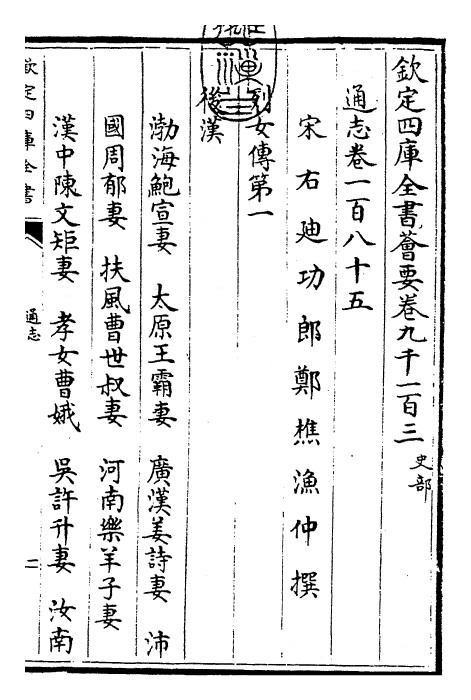 欽定四庫全書薈要卷九千一百三 史部
通志卷一百八十五
宋右迪功郎鄭樵漁仲撰
列女傳第一
後漢
渤海鮑宣妻 太原王霸妻 廣漢姜詩妻 沛
國周郁妻 扶風曹世叔妻 河南樂羊子妻
漢中陳文矩妻 孝女曹娥 吳許升妻 汝南
欽定四庫全書
通志